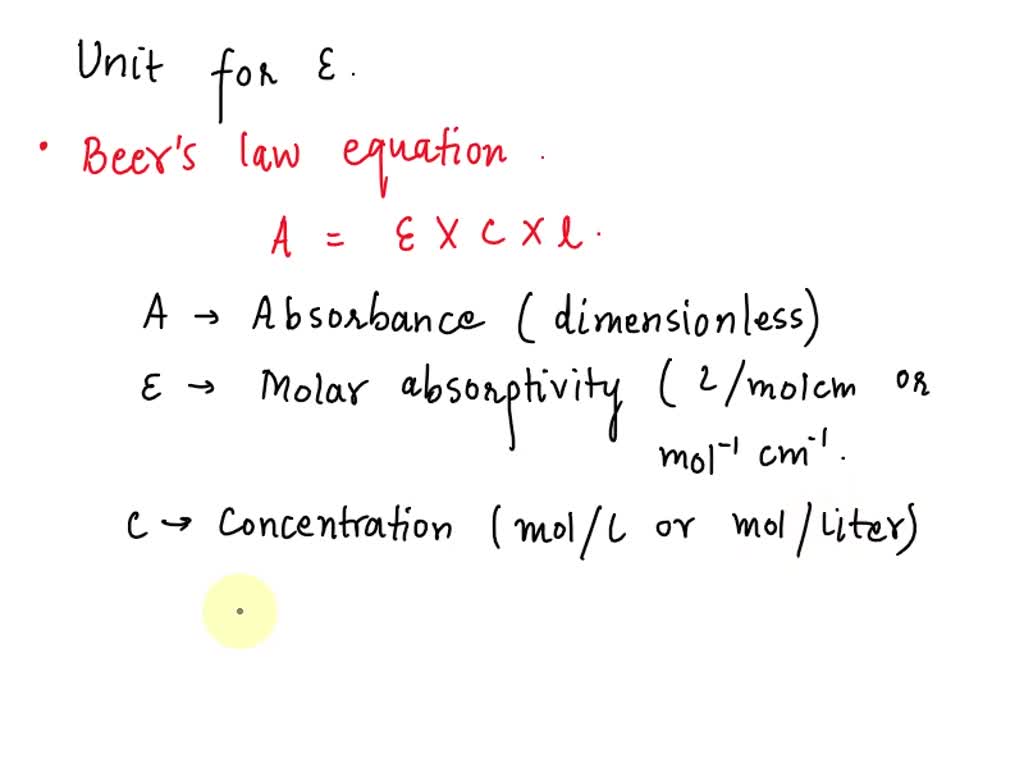 Unit for ε.
• Beer's law equation.
A = ε X C X l.
A → Absorbance (dimensionless)
ε → Molar absorptivity (2/molcm or
mol⁻¹ cm⁻¹.
C → Concentration (mol/L or mol/Liter)